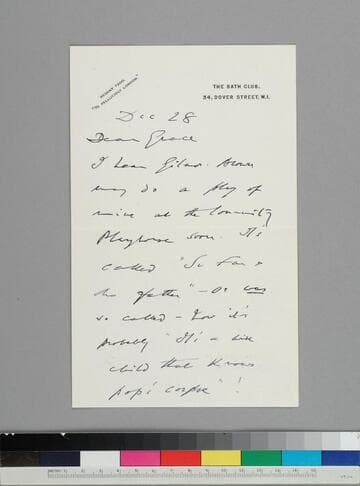 THE BATH CLUB,
34, DOVER STREET, W.1.
Dec 28
Dear Grace
I hear Gilmor Brown
may do a play of
mine at the Community
Playhouse soon. It's
called "So Far &
no father" – or was
so called – Now it's
probably "It's a wise
child that knows
pop's corpse"!